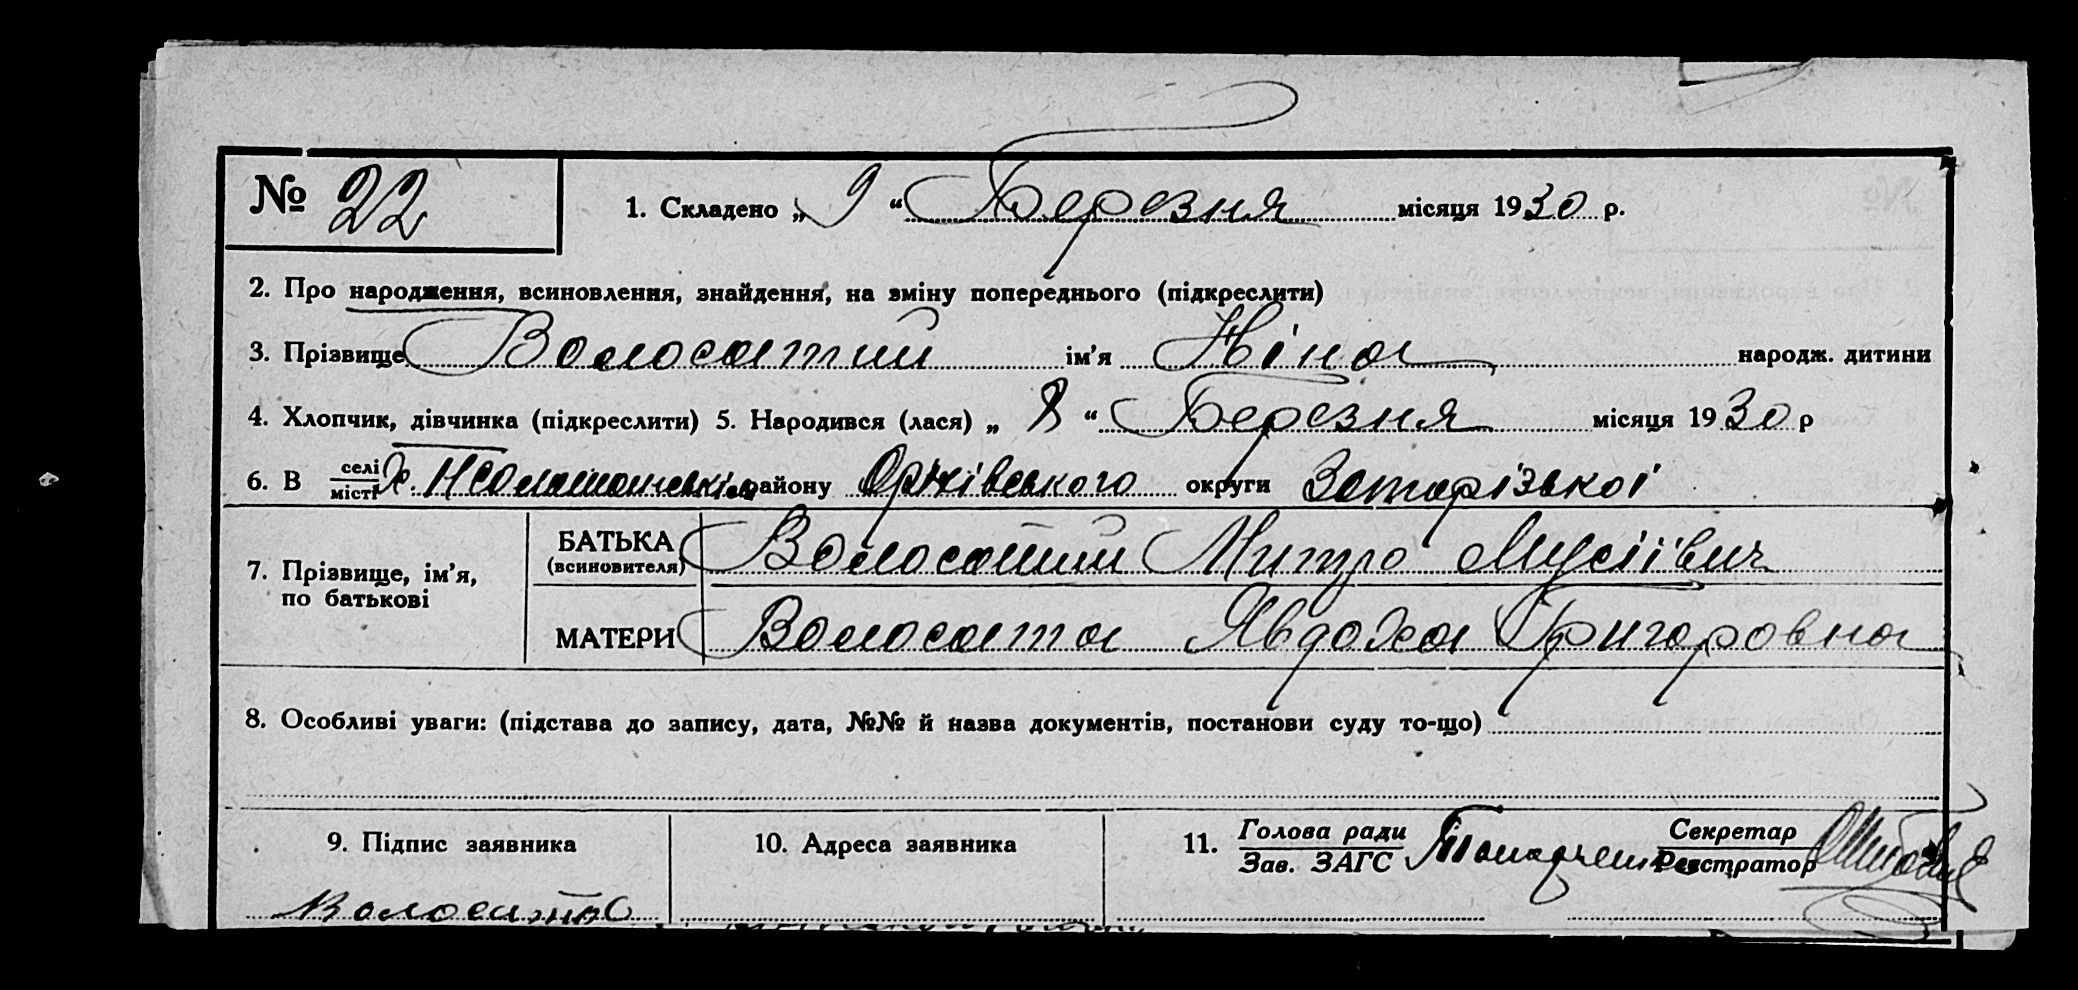 № 22 1. Складено „ 9 “ Березня місяця 1930 р.
2. Про народження, всиновлення, знайдення, на зміну попереднього (підкреслити)
3. Прізвище Волосатий ім’я Ніна народж. дитини
4. Хлопчик, дівчинка (підкреслити) 5. Народився (лася) „ 8 “ Березня місяця 1930 р
6. В селі/місті х. району Оріхівського округи Запорізької
7. Прізвище, ім’я, по батькові
БАТЬКА (всиновителя) Волосатий Митро Мусіївич
МАТЕРИ Волосата Явдоха Григоровна
8. Особливі уваги: (підстава до запису, дата, №№ й назва документів, постанови суду то-що)
9. Підпис заявника 10. Адреса заявника 11. Голова ради/Зав. ЗАГС Секретар/Реєстратор